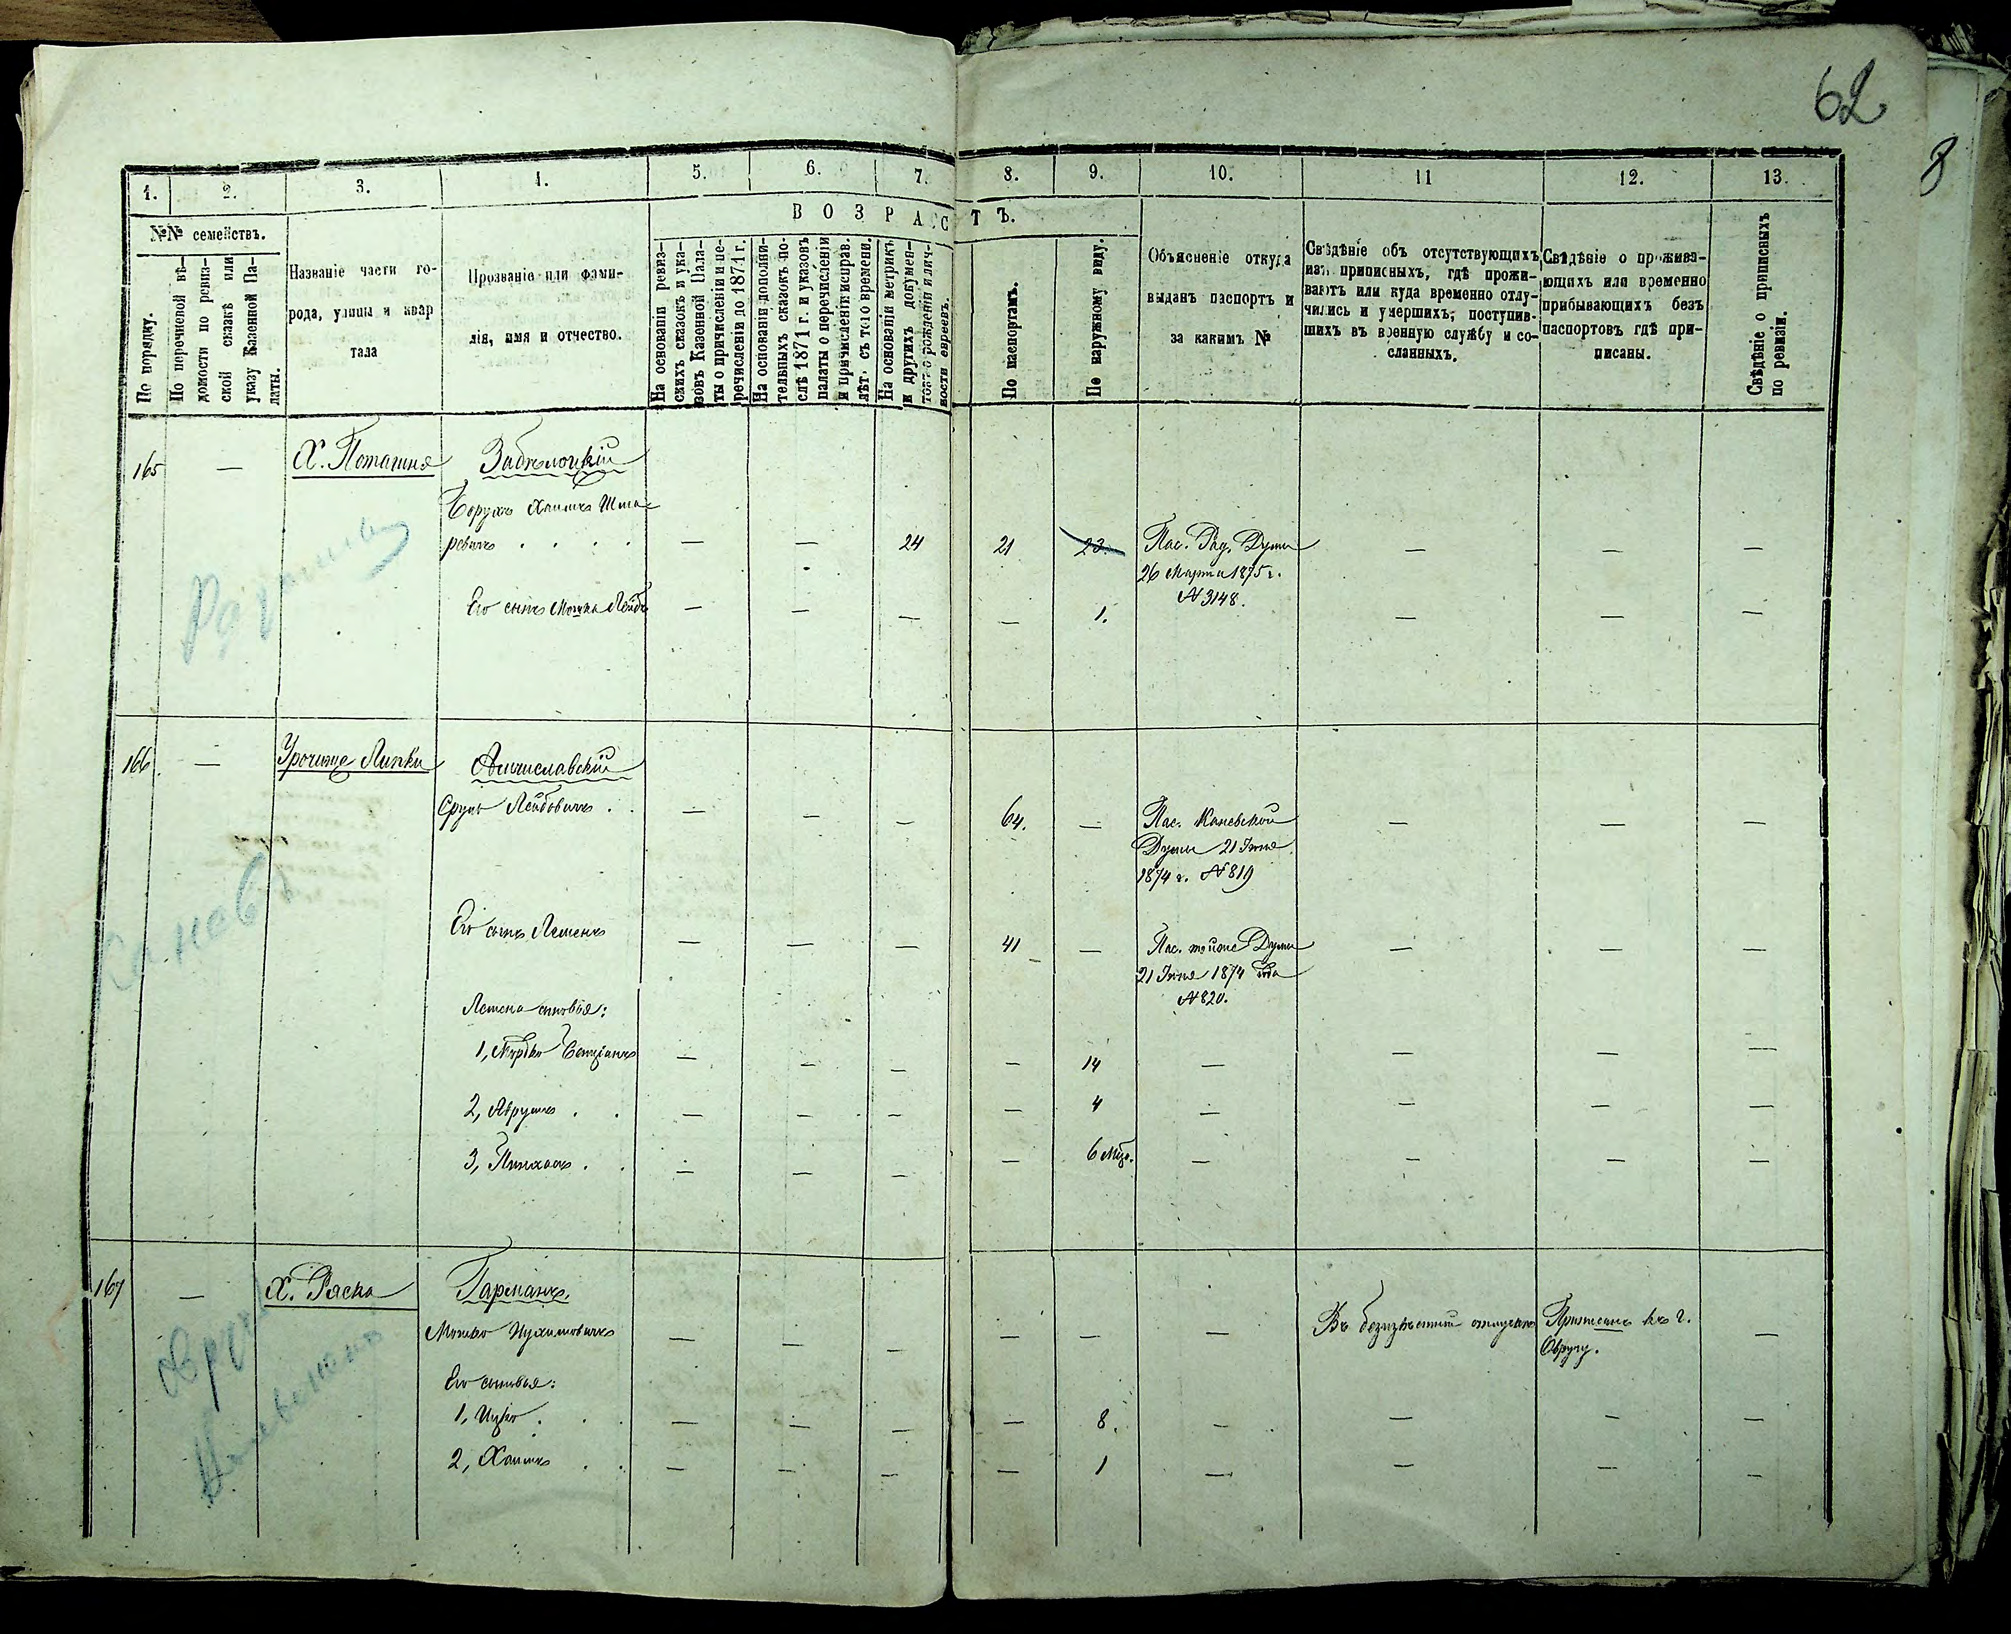 62
8
1. 2. 3. 4. 5. 6. 7. 8. 9. 10. 11 12. 13.
№№ семействъ.
В О З Р А С Т Ъ.
По порядку.
По перечневой вѣ-
домости по ревиз-
ской сказкѣ или
указу Казенной Па-
латы.
Названіе части го-
рода, улицы и квар
тала
Прозваніе или фами-
лія, имя и отчество.
На основаніи ревиз-
скихъ сказокъ и ука-
зовъ Казенной Пала-
ты о причисленіи и пе-
речисленіи до 1871 г.
На основаніи дополни-
тельныхъ сказокъ по-
слѣ 1871 г. и указовъ
палаты о перечисленіи
и причисленіи исправ.
лѣт. съ того времени.
На основаніи метрикъ
и другихъ докумен-
товъ о рожденіи и лич-
ности евреевъ.
По паспортамъ.
По наружному виду.
Объясненіе откуда
выданъ паспортъ и
за какимъ №
Свѣдѣніе объ отсутствующихъ
изъ приписныхъ, гдѣ прожи-
ваютъ или куда временно отлу-
чились и умершихъ; поступив-
шихъ въ военную службу и со-
сланныхъ.
Свѣдѣніе о прожива-
ющихъ или временно
прибывающихъ безъ
паспортовъ гдѣ при-
писаны.
Свѣдѣніе о приписныхъ
по ревизіи.
165 — Х. Поташня Забѣлоцкій
Борухъ Хаимъ Шма-
ревичъ . . . . — — 24 21 23. Пас. Рад. Думы — — —
26 Марта 1875 г.
№ 3148.
Его сынъ Мошка Лейб — — — — 1. — — —
166. — Урочище Липки
Сруль Лейбовичъ . . — — — 64. — Пас. Каневской — — —
Думы 21 Іюня
1874 г. № 819
Каневъ
Его сынъ — — — 41 — Пас. тойже Думы — — —
21 Іюня 1874 года
№ 820.
сыновья:
1, — — — — 14 — — — —
2, Аврумъ . . — — — — 4 — — — —
3, Пинхасъ . . — — — — 6 Мѣс. — — — —
167 — Х. Ряска Гарманъ.
Мошко — — — — — — Въ безизвѣстной отлучкѣ Приписанъ къ г. —
Овручу.
Его сыновья:
1, Ицко . . . — — — — 8. — — — —
2, Хаимъ . . — — — — 1 — — — —